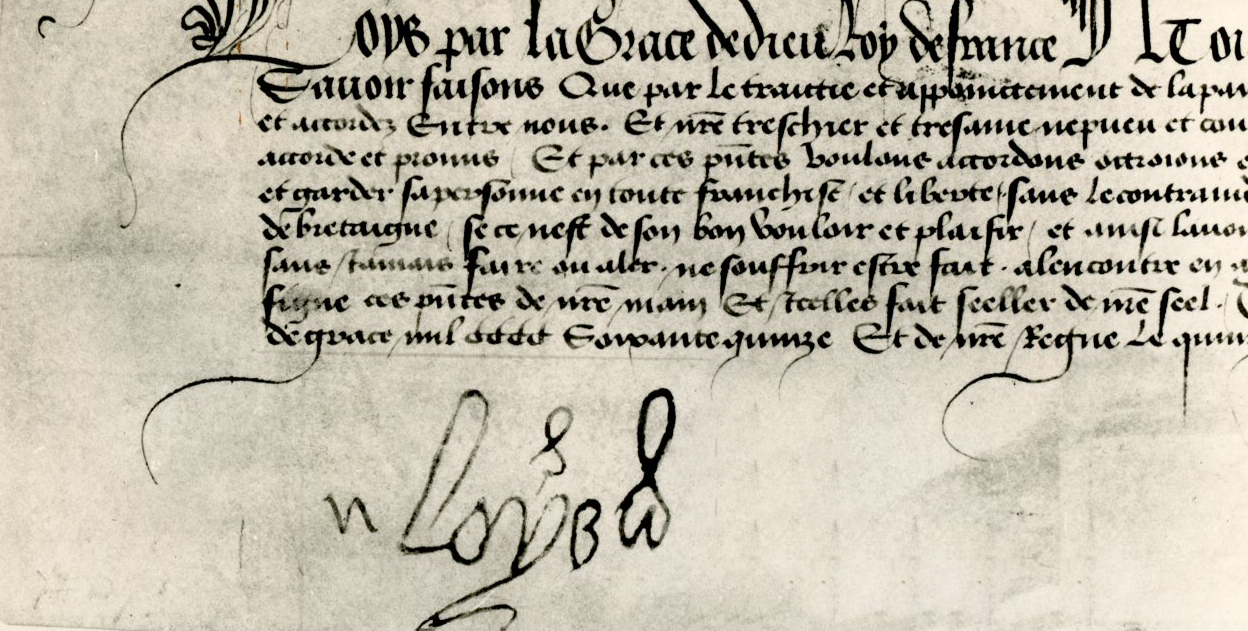 Loys par la Grace de dieu Roy de france A Tou
Sauoir faisons Que par le traittie et appointement de la pai
et accordez Entre nous. Et nr̃e treschier et tresame nepueu et cou
accorde et promis Et par ces pñtes voulons accordons octroions
et garder sa personne en toute franchise / et liberte / sans le contraind
de bretaigne / se ce nest de son bon vouloir et plaisir / et ainsi lauon
sans Jamais faire ou aler. ne souffrir estre fait. alencontre en
signe ces pñtes de nr̃e main Et Icelles fait seeller de nr̃e seel.
de grace mil cccc Soixante quinze Et de nr̃e Regne Le quin
Loys